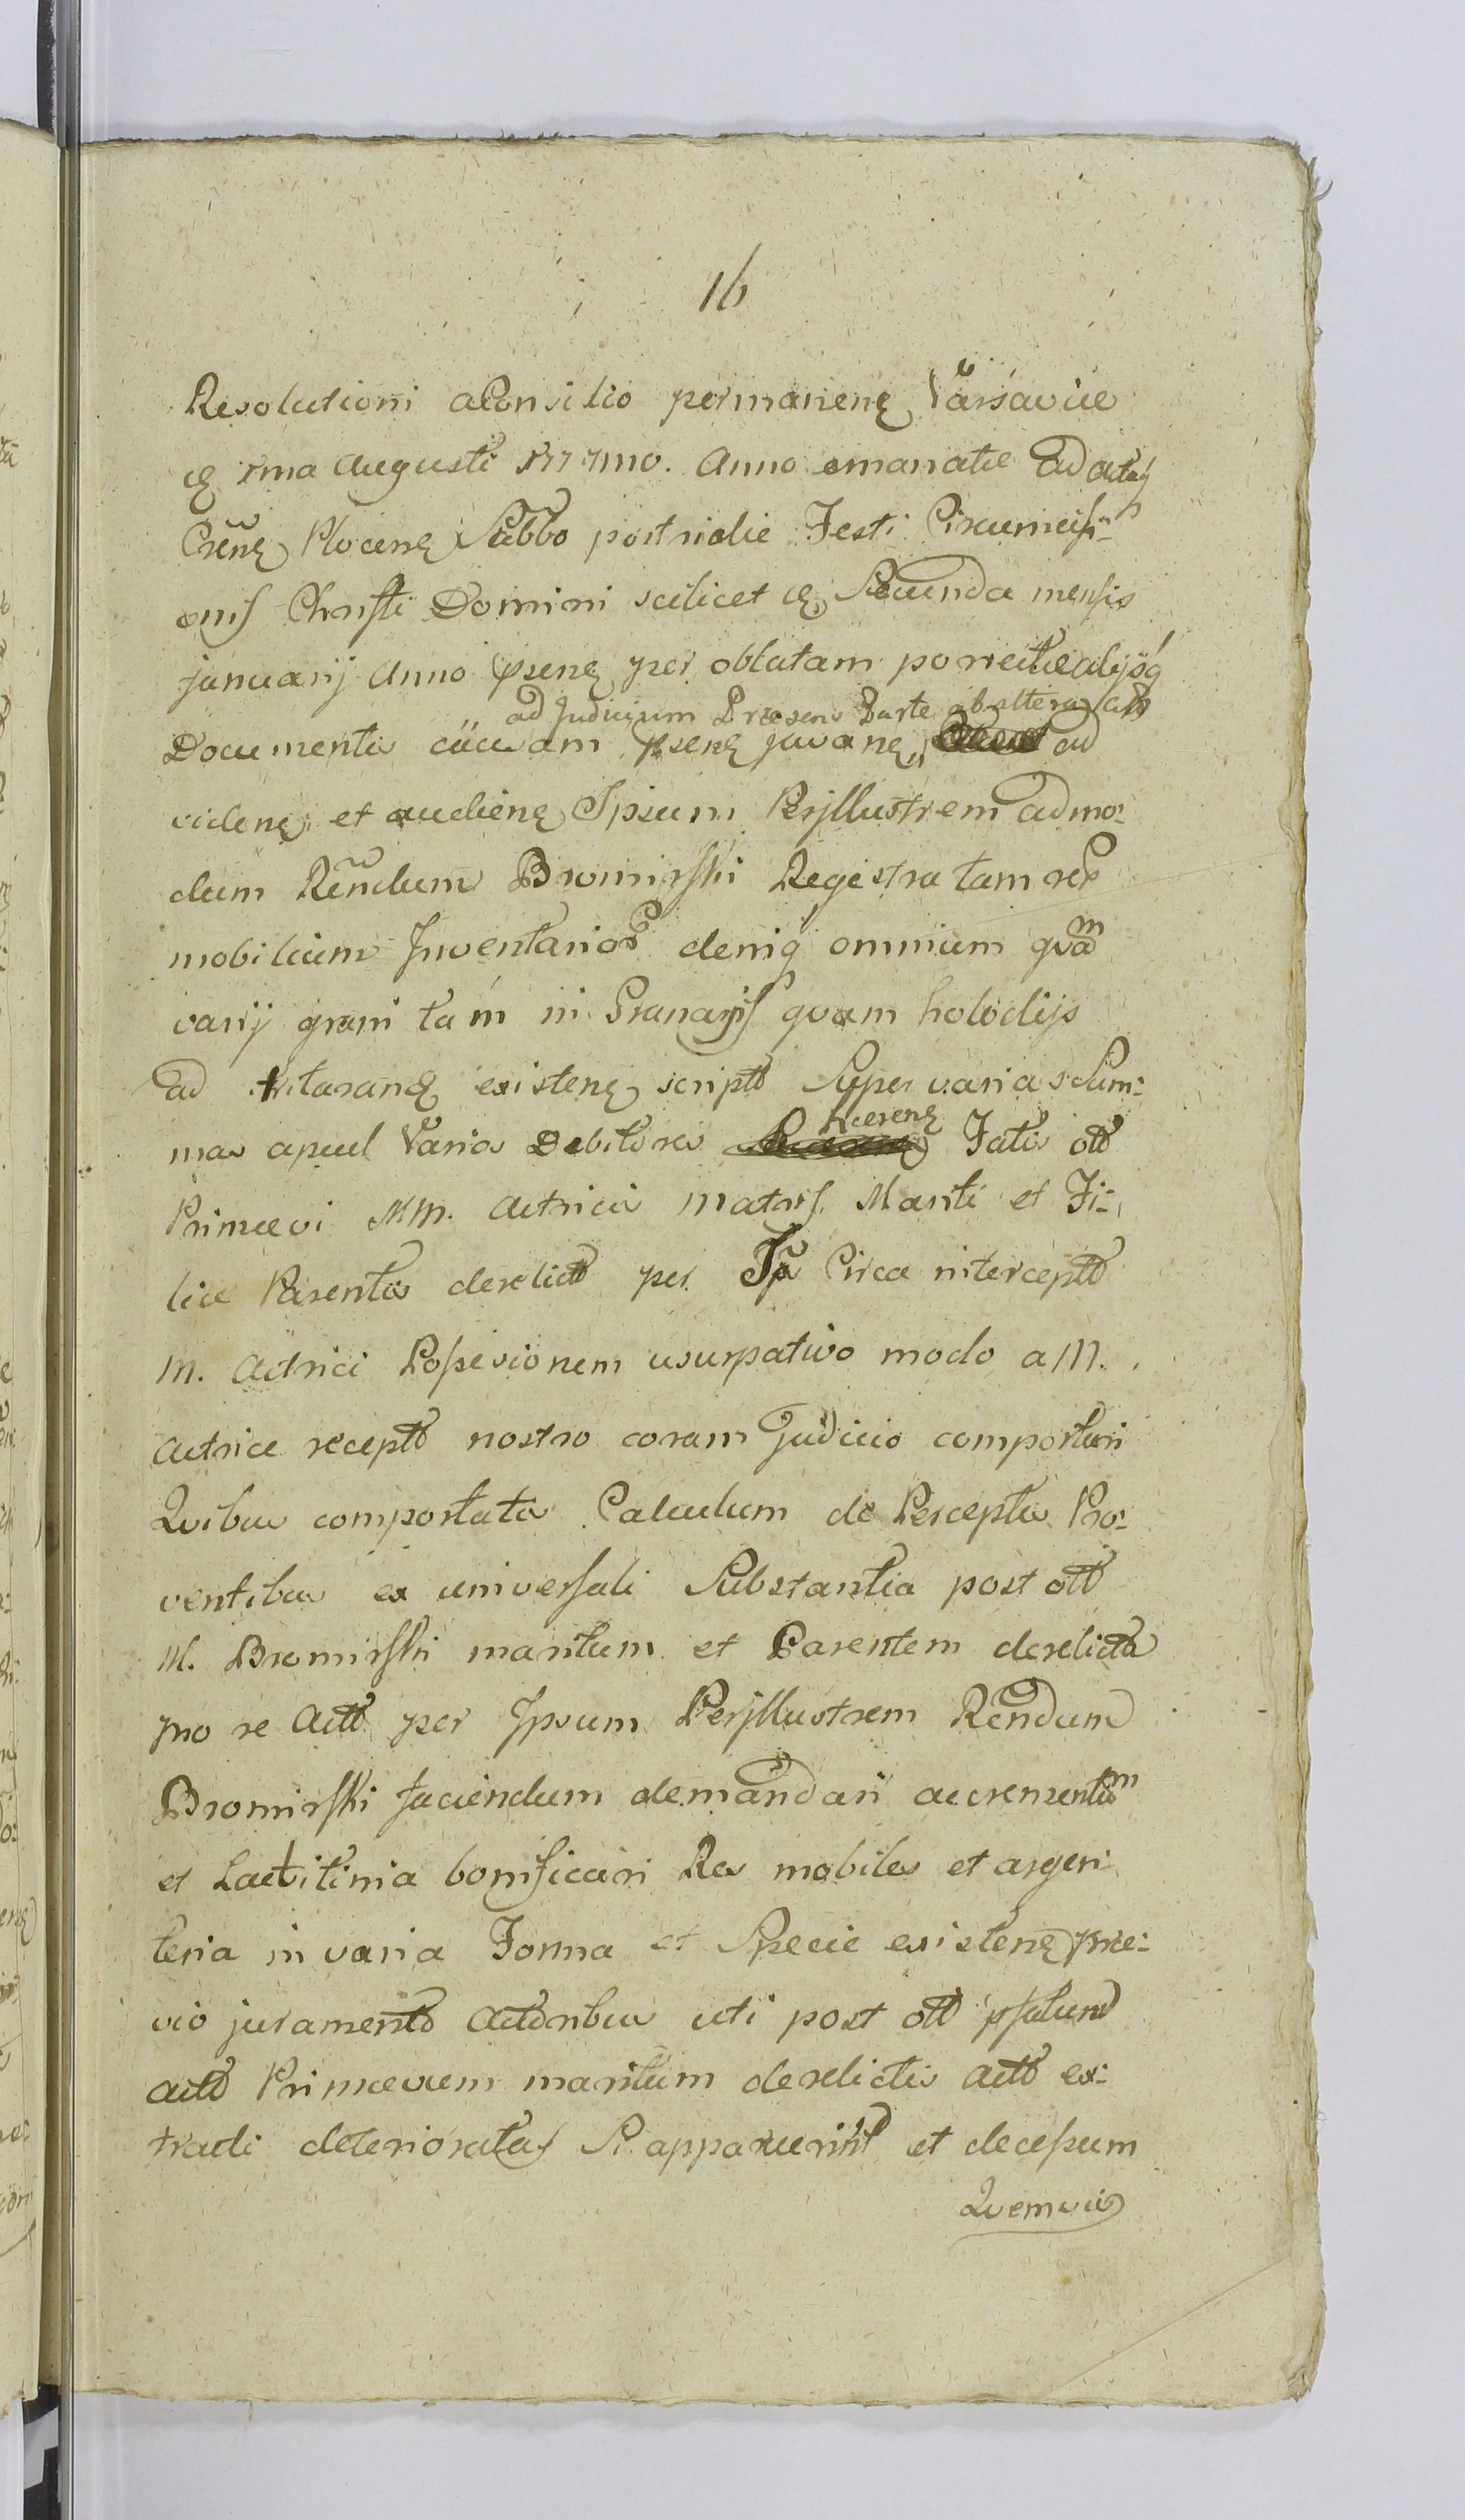 16
Resolutioni a Consilio permanenę Varsaviæ
Augusti 1777mo. Anno emanatæ ad acta
Crenę Plocenę Sabbo postridie Festi Circumcisi-
onis Christi Domini scilicet Secunda mensis
januarij Anno psenę per oblatam porrectæ alijsq
ad Judicium Præsens Parte ab altera
Documentis causam psenę juvanę ad
videnę et audienę Ipsum Perjllustrem admo:
dum Rendum Bromirski Regestra tam rer
mobilium Inventarior deniq omnium qvam
varij grani tam in Granarijs qvam holodijs
ad triturand existenę script Super varias Sum:
mas apud Varios Debitores hærenę Fatis olt
Primævi MM. Actricis matris Mariti et Fi:
liæ Parentis derelict per Circa intercept
M. Actrici Possessionem usurpativo modo a M.
Actrice recept nostro coram Judicio comportari
Qvibus comportatis Calculum de Perceptis Pro:
ventibus ex universali Substantia post olt
M. Bromirski maritum et Parentem derelicta
pro re Act per Ipsum Perjllustrem Rendum
Bromirski faciendum demandari accrementum
et Lactitinia bonificari Res mobiles et argen:
teria in varia Forma et Specie existenę præ:
vio jurament Actoribus uti post olt
act Primævum maritum derelictis act ex:
tradi deterioratas Si apparuerint et decessum
Qvemvis